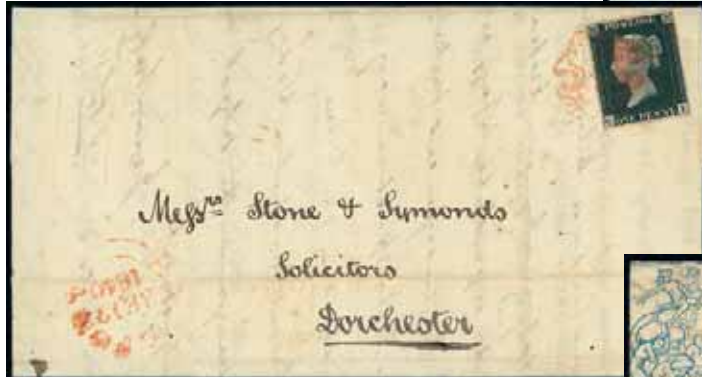 POSTAGE
ONE PENNY
Mefsrs Stone & Symonds
Solicitors
Dorchester